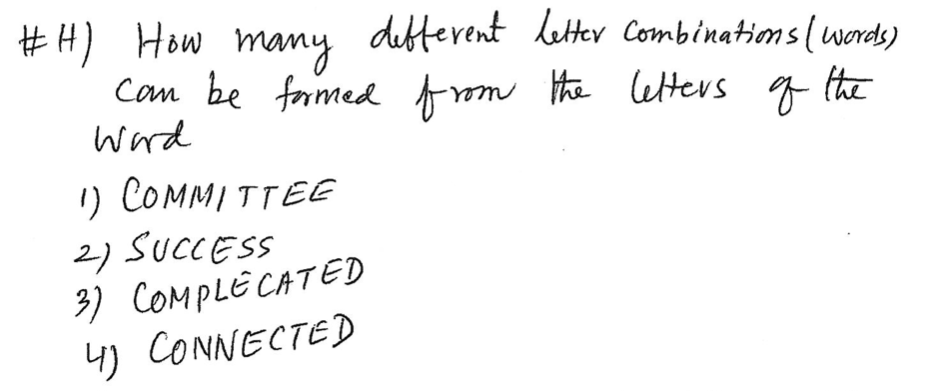 #4) How many different letter Combinations (words)
Can be formed from the letters of the
Word
1) COMMITTEE
2) SUCCESS
3) COMPLECATED
4) CONNECTED